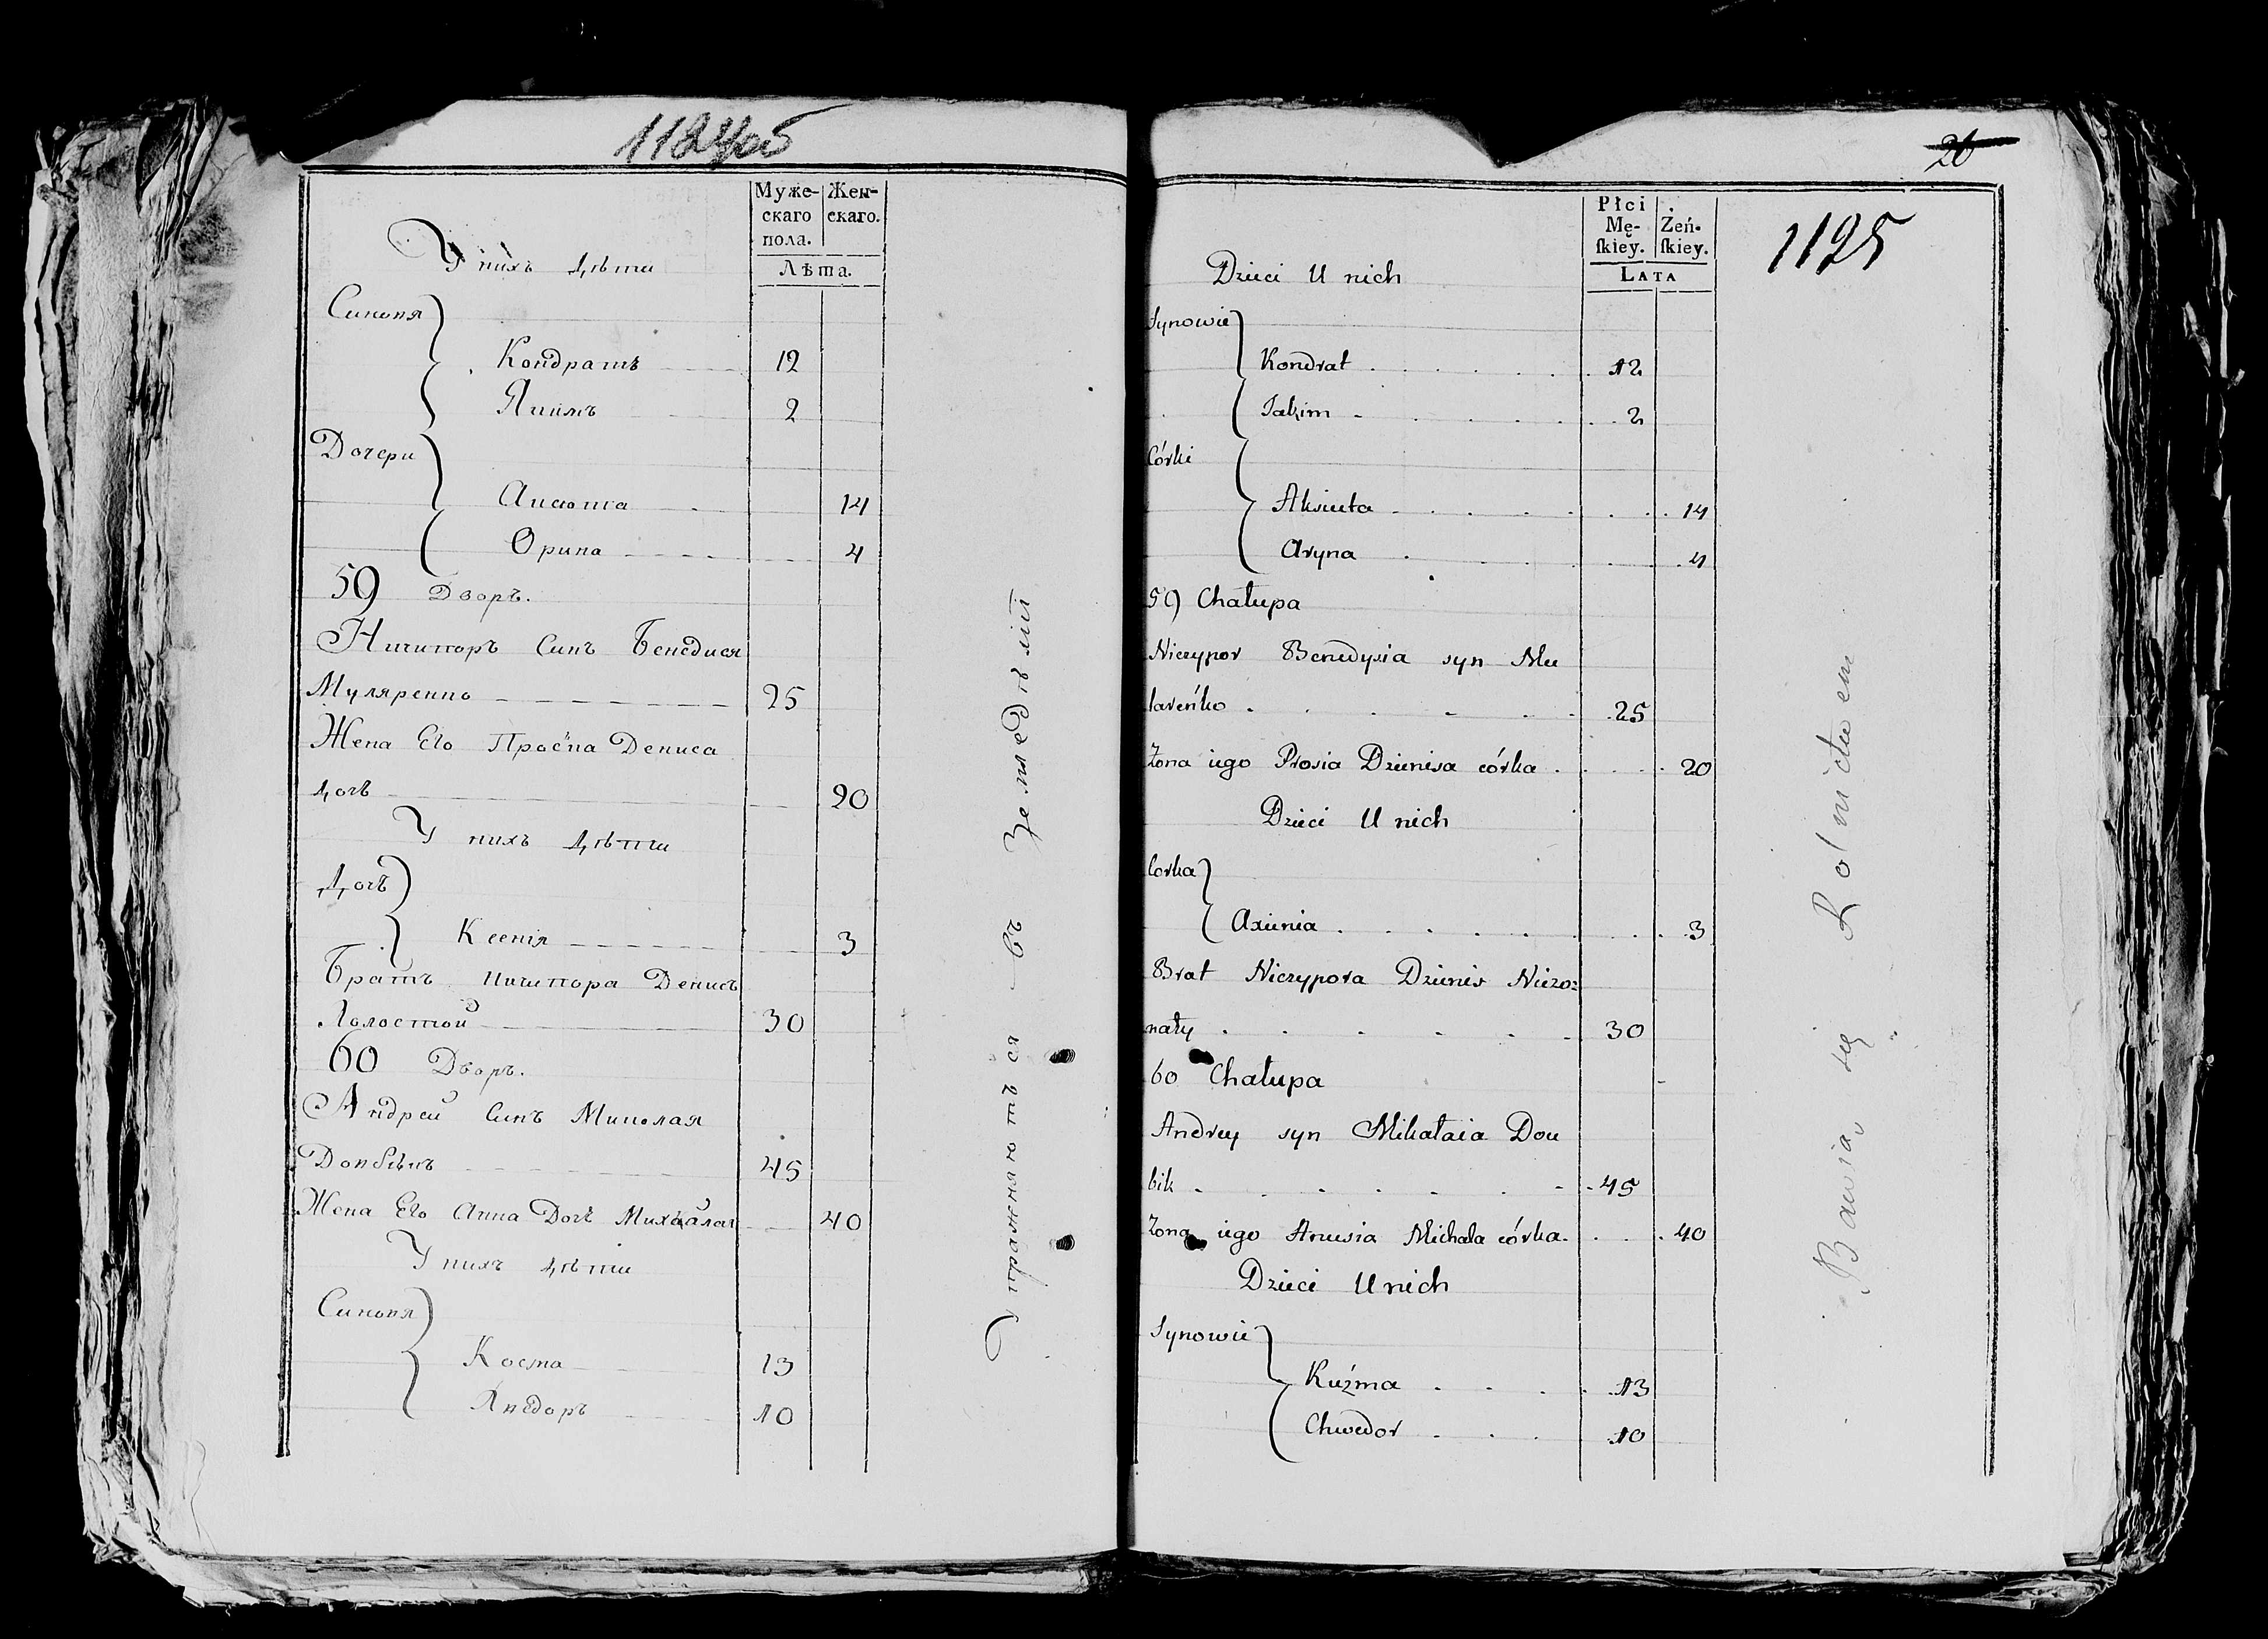 1124об
Муже-
скаго
пола.
Жен-
скаго.
Лѣта.
У нихъ дѣти
Синовя
Кондратъ 12
Якимъ 2
Дочери
Аксюта 14
Орина 4
59 Дворъ.
Ничипоръ Синъ Бенедися
Муляренко 25
Жена Его Прос̈ка Дениса
дочъ 20
У нихъ дѣти
Дочъ
Ксенія 3
Братъ ничипора Денисъ
Холостой 30
60 Дворъ.
Андрей Синъ Миколая
Жена Его Анна Дочъ Михайлая 40
У нихъ дѣти
Синовя
Косма 13
Хведоръ 10
45
Упражняютъся въ Земледѣлїй
26
1125
Płci
Mę-
skiey.
Żeń-
skiey.
LATA
Dzieci U nich
Synowie
Kondrat 12
Jakim 2
Córki
Aksiuta 14
Aryna 4
59 Chałupa
Niczypor Benedysia syn Mu
lareńko 25
Żona iego Prosia Dzienisa córka 20
Dzieci U nich
Corka
Axienia 3
Brat Niczypora Dzienis Nieżo=
naty 30
60 Chałupa
Andrey syn Mikałaia Dou
bik 45
Żona iego Anusia Michała córka 40
Dzieci U nich
Synowie
Kuźma 13
Chwedor 10
Bawią się Rolnictwem